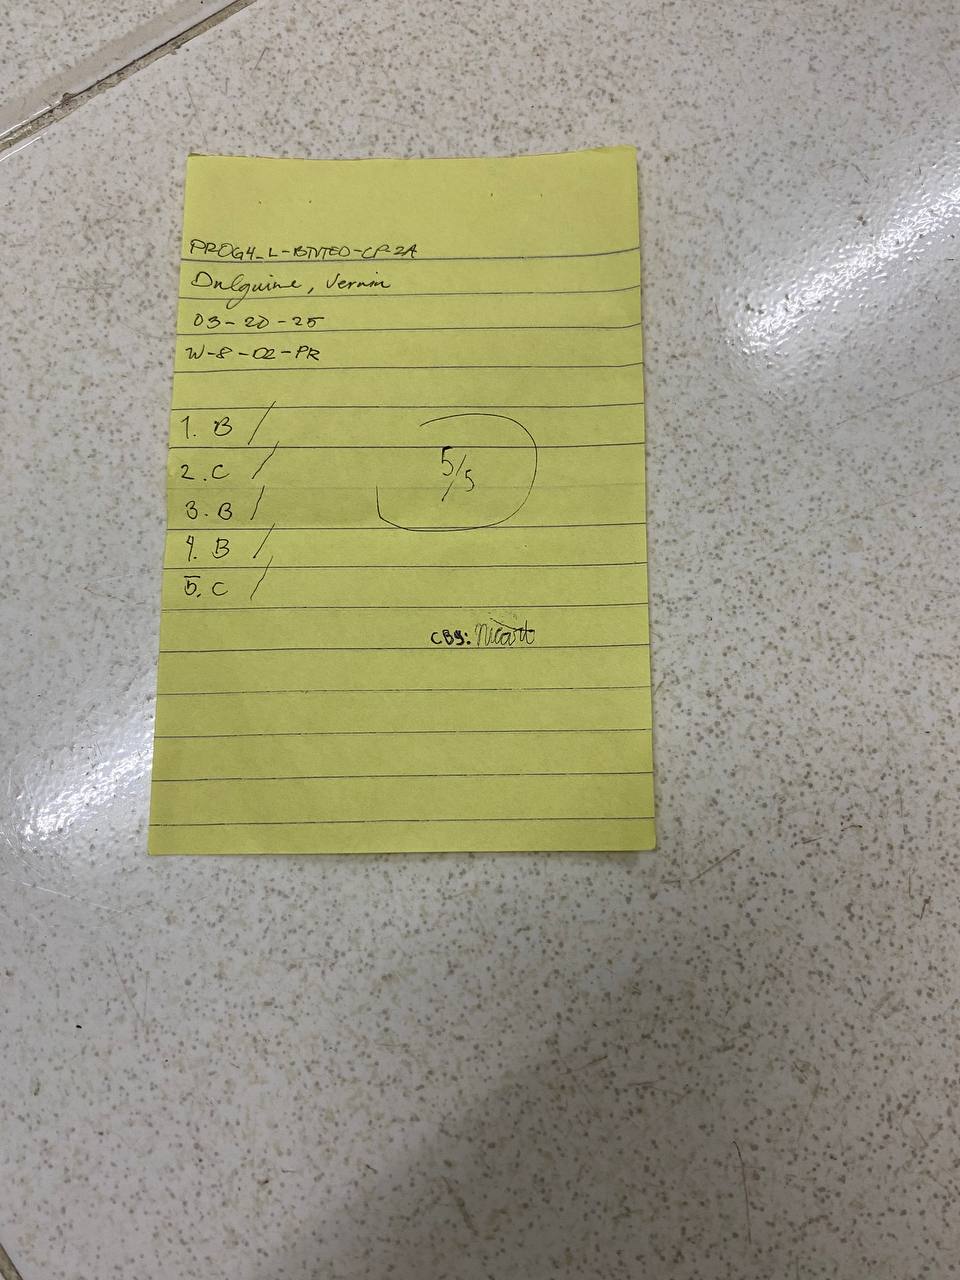 PROG4_L-BTVTED-CP-2A
Dulguime, Vernin
03-20-25
W-8-02-PR
1. B /
2. C /
3. B /
4. B /
5. C /
5/5
CBy: Nicart